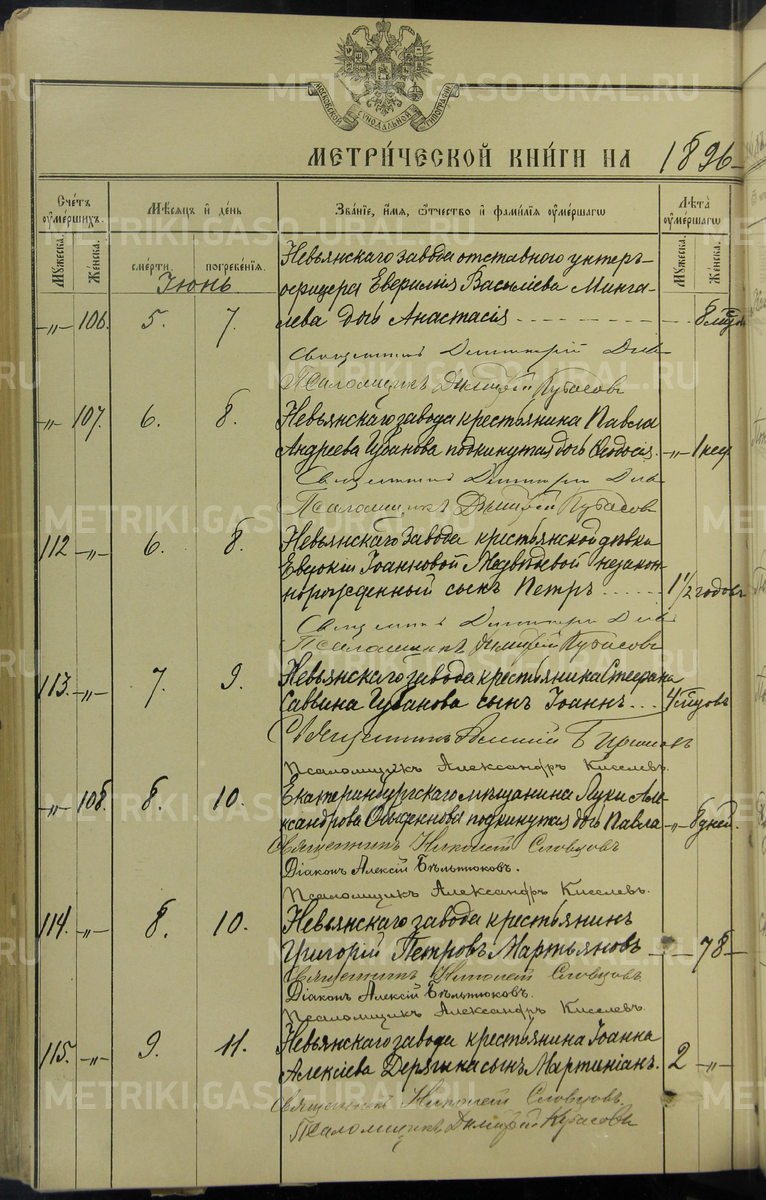 МОСКОВСКОЙ СѴНОДАЛЬНОЙ ТИПОГРАФІИ
МЕТРИ́ЧЕСКОЙ КНИ́ГИ НА 1896
Сче́тъ ᲂу҆ме́ршихъ.
Мѣ́сяцъ и҆ де́нь
Зва́нїе, и҆́мя, ѻ҆́тчество и҆ фами́лїя ᲂу҆ме́ршагѡ
Лѣ́та ᲂу҆ме́ршагѡ
Мꙋ́жеска.
Же́нска.
сме́рти.
погребе́нїя.
Мꙋ́жеска.
Же́нска.
Іюнь
Невьянскаго завода отставного унтеръ-
офицера Василіева Минга-
-„- 106. 5. 7. лева дочь Анастасія - - - 8 м
Священникъ Димитрій
Псаломщикъ Димитрій Кубасовъ
-„- 107. 6. 8. Невьянскаго завода крестьянина Павла
Андреева Губанова подкинутая дочь Ѳеодосія. -„- 1 нед
Священникъ Димитрій
Псаломщикъ Димитрій Кубасовъ
112 -„- 6. 8. Невьянскаго завода крестьянской дѣвки
Евдокіи Іоанновой Медвѣдевой незакон-
норожденный сынъ Петръ . . . . . 1 1/2 годовъ
Священникъ Димитрій
Псаломщикъ Димитрій Кубасовъ
113. -„- 7. 9. Невьянскаго завода крестьянина Стефана
Саввина Губанова сынъ Іоаннъ . . . 4 м
Священникъ
Псаломщикъ Александръ Киселевъ.
-„- 108. 8. 10. Екатеринбургскаго мѣщанина Луки Але-
ксандрова подкинутая дочь Павла -„- 8 дней.
Священникъ Николай Словцовъ
Діаконъ Алексій Бѣльтюковъ.
Псаломщикъ Александръ Киселевъ.
114. -„- 8. 10. Невьянскаго завода крестьянинъ
Григорій Петровъ Мартьяновъ - - 78 -
Священникъ Николай Словцовъ
Діаконъ Алексій Бѣльтюковъ.
Псаломщикъ Александръ Киселевъ.
115. -„- 9. 11. Невьянскаго завода крестьянина Іоанна
Алексіева Дерягина сынъ Мартиніанъ. 2 -„-
Священникъ Николай Словцовъ.
Псаломщикъ Димитрій Кубасовъ
METRIKI.GASO-URAL.RU